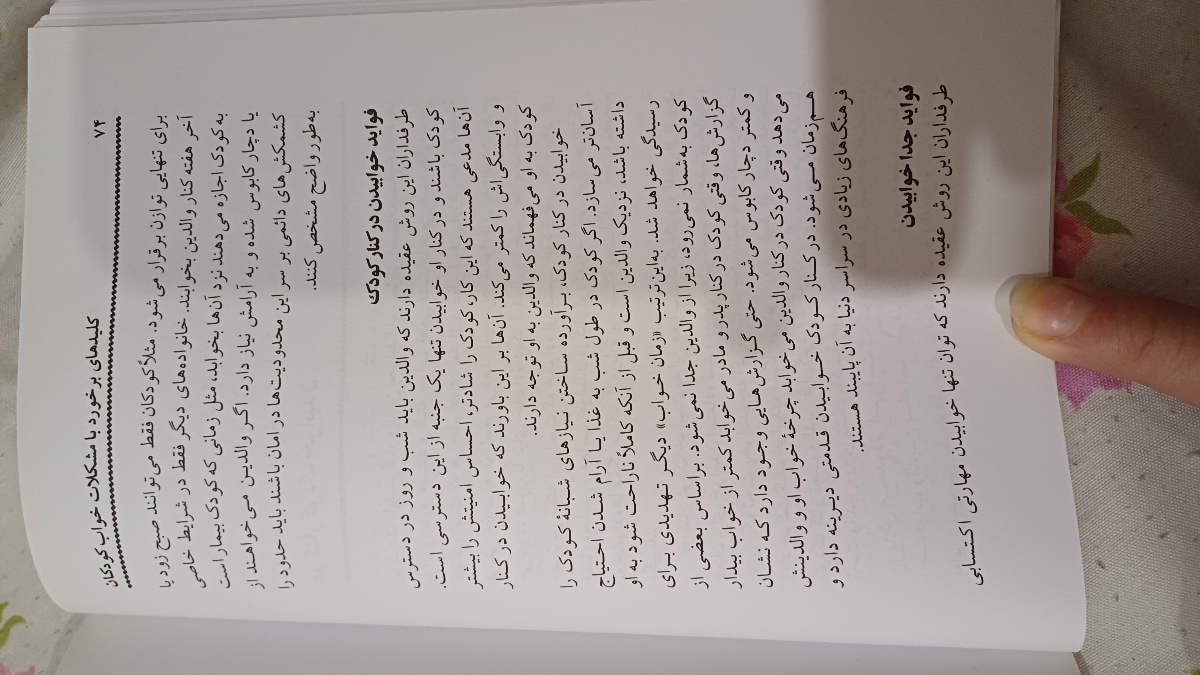 ۷۴
کلیدهای برخورد با مشکلات خواب کودکان
برای تنهایی توازن برقرار می‌شود. مثلاً کودکان فقط می‌توانند صبح زود یا
آخر هفته کنار والدین بخوابند. خانواده‌های دیگر فقط در شرایط خاصی
به کودک اجازه می‌دهند نزد آن‌ها بخوابد، مثل زمانی که کودک بیمار است
یا دچار کابوس شده و به آرامش نیاز دارد. اگر والدین می‌خواهند از
کشمکش‌های دائمی بر سر این محدودیت‌ها در امان باشند باید حدود را
به‌طور واضح مشخص کنند.
فواید خوابیدن در کنار کودک
طرفداران این روش عقیده دارند که والدین باید شب و روز در دسترس
کودک باشند و در کنار او خوابیدن تنها یک جنبه از این دسترسی است.
آن‌ها مدعی هستند که این کار، کودک را شادتر، احساس امنیتش را بیشتر
و وابستگی‌اش را کمتر می‌کند. آن‌ها بر این باورند که خوابیدن در کنار
کودک به او می‌فهماند که والدین به او توجه دارند.
خوابیدن در کنار کودک، برآورده ساختن نیازهای شبانهٔ کودک را
آسان‌تر می‌سازد. اگر کودک در طول شب به غذا یا آرام شدن احتیاج
داشته باشد، نزدیک والدین است و قبل از آنکه کاملاً ناراحت شود به او
رسیدگی خواهد شد. به‌این‌ترتیب «زمان خواب» دیگر تهدیدی برای
کودک به‌شمار نمی‌رود، زیرا از والدین جدا نمی‌شود. براساس بعضی از
گزارش‌ها، وقتی کودک در کنار پدر و مادر می‌خوابد کمتر از خواب بیدار
و کمتر دچار کابوس می‌شود. حتی گزارش‌هایی وجود دارد که نشان
می‌دهد وقتی کودک در کنار والدین می‌خوابد چرخهٔ خواب او و والدینش
هم‌زمان می‌شود. در کنار کودک خوابیدن قدمتی دیرینه دارد و
فرهنگ‌های زیادی در سراسر دنیا به آن پایبند هستند.
فواید جدا خوابیدن
طرفداران این روش عقیده دارند که توان تنها خوابیدن مهارتی اکتسابی